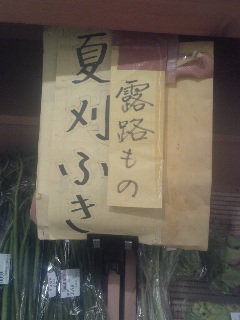 夏刈ふき
露路もの